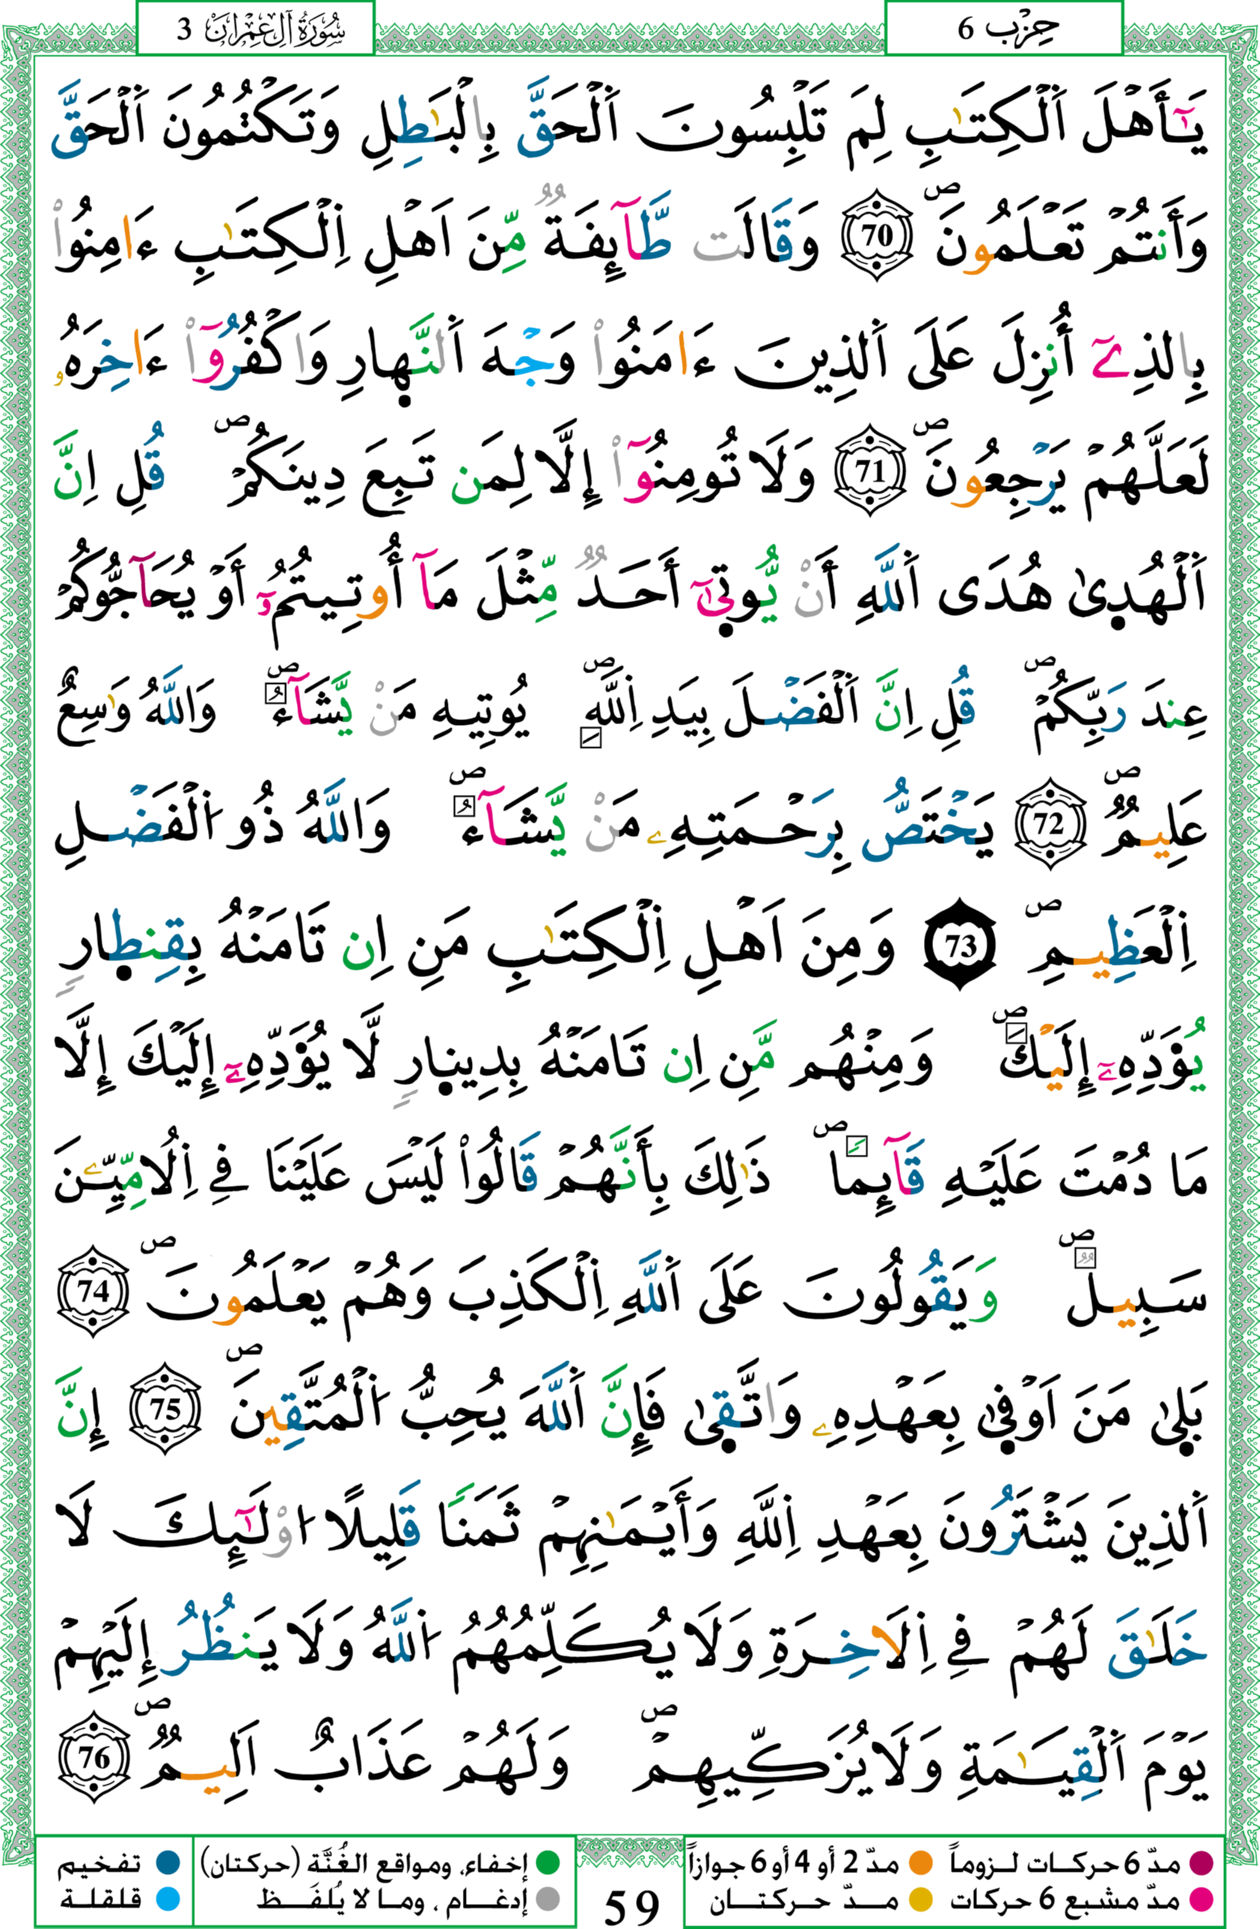 حِزْب 6
سُورَةُ آلِ عِمْرَان 3
يَـٰٓأَهْلَ اَ۬لْكِتَـٰبِ لِمَ تَلْبِسُونَ اَ۬لْحَقَّ بِالْبَـٰطِلِ وَتَكْتُمُونَ اَ۬لْحَقَّ
وَأَنتُمْ تَعْلَمُونَۖ 70 وَقَالَت طَّآئِفَةٌ مِّنَ اَهْلِ اِ۬لْكِتَـٰبِ ءَامِنُواْ
بِالذِےٓ أُنزِلَ عَلَى اَ۬لذِينَ ءَامَنُواْ وَجْهَ اَ۬لنَّهارِ وَاكْفُرُوٓاْ ءَاخِرَهُۥ
لَعَلَّهُمْ يَرْجِعُونَۖ 71 وَلَا تُومِنُوٓاْ إِلَّا لِمَن تَبِعَ دِينَكُمْۖ قُلِ اِنَّ
اَ۬لْهُدِىٰ هُدَى اَ۬للَّهِ أَنْ يُّوتِىٰٓ أَحَدٌ مِّثْلَ مَآ أُوتِيتُمُۥٓ أَوْ يُحَآجُّوكُمْ
عِندَ رَبِّكُمْۖ قُلِ اِنَّ اَ۬لْفَضْلَ بِيَدِ اِ۬للَّهِۖ يُوتِيهِ مَنْ يَّشَآءُۖ وَاللَّهُ وَٰسِعٌ
عَلِيمٌۖ 72 يَخْتَصُّ بِرَحْمَتِهِۦ مَنْ يَّشَآءُۖ وَاللَّهُ ذُو اُ۬لْفَضْلِ
اِ۬لْعَظِيمِۖ 73 وَمِنَ اَهْلِ اِ۬لْكِتَـٰبِ مَنِ اِن تَامَنْهُ بِقِنطارٍ
يُؤَدِّهِۦٓ إِلَيْكَۖ وَمِنْهُم مَّنِ اِن تَامَنْهُ بِدِينارٍ لَّا يُؤَدِّهِۦٓ إِلَيْكَ إِلَّا
مَا دُمْتَ عَلَيْهِ قَآئِماًۖ ذَٰلِكَ بِأَنَّهُمْ قَالُواْ لَيْسَ عَلَيْنَا فِے اِ۬لُامِّيِّـۧنَ
سَبِيلٌۖ وَيَقُولُونَ عَلَى اَ۬للَّهِ اِ۬لْكَذِبَ وَهُمْ يَعْلَمُونَۖ 74
بَلِىٰ مَنَ اَوْفِىٰ بِعَهْدِهِۦ وَاتَّقِىٰ فَإِنَّ اَ۬للَّهَ يُحِبُّ اُ۬لْمُتَّقِينَۖ 75 إِنَّ
اَ۬لذِينَ يَشْتَرُونَ بِعَهْدِ اِ۬للَّهِ وَأَيْمَـٰنِهِمْ ثَمَناً قَلِيلًا ا۟وْلَـٰٓئِكَ لَا
خَلَـٰقَ لَهُمْ فِے اِ۬لَاخِرَةِ وَلَا يُكَلِّمُهُمُ اُ۬للَّهُ وَلَا يَنظُرُ إِلَيْهِمْ
يَوْمَ اَ۬لْقِيَـٰمَةِ وَلَا يُزَكِّيهِمْۖ وَلَهُمْ عَذَابٌ اَلِيمٌۖ 76
مدّ 6 حركات لـزوماً مدّ 2 أو 4 أو 6 جوازاً
مدّ مشبع 6 حركات مــدّ حــركتــان
59
إخفاء، ومواقع الغُنَّة (حركتان) تفخيم
إدغــام ، ومـا لا يُلفَـظ قلقلة